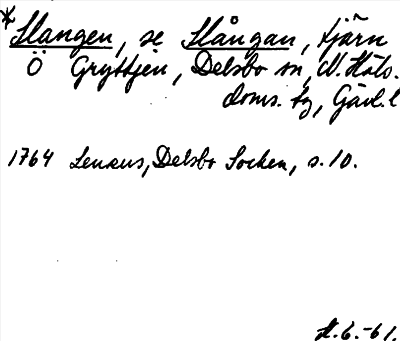 *Slangen, se Slångan, tjärn
Ö Gryttjen, Delsbo sn, N. Häls.
doms. tg, Gävl. l
1764 Lenæus, Delsbo Socken, s. 10.
H.G.-61.